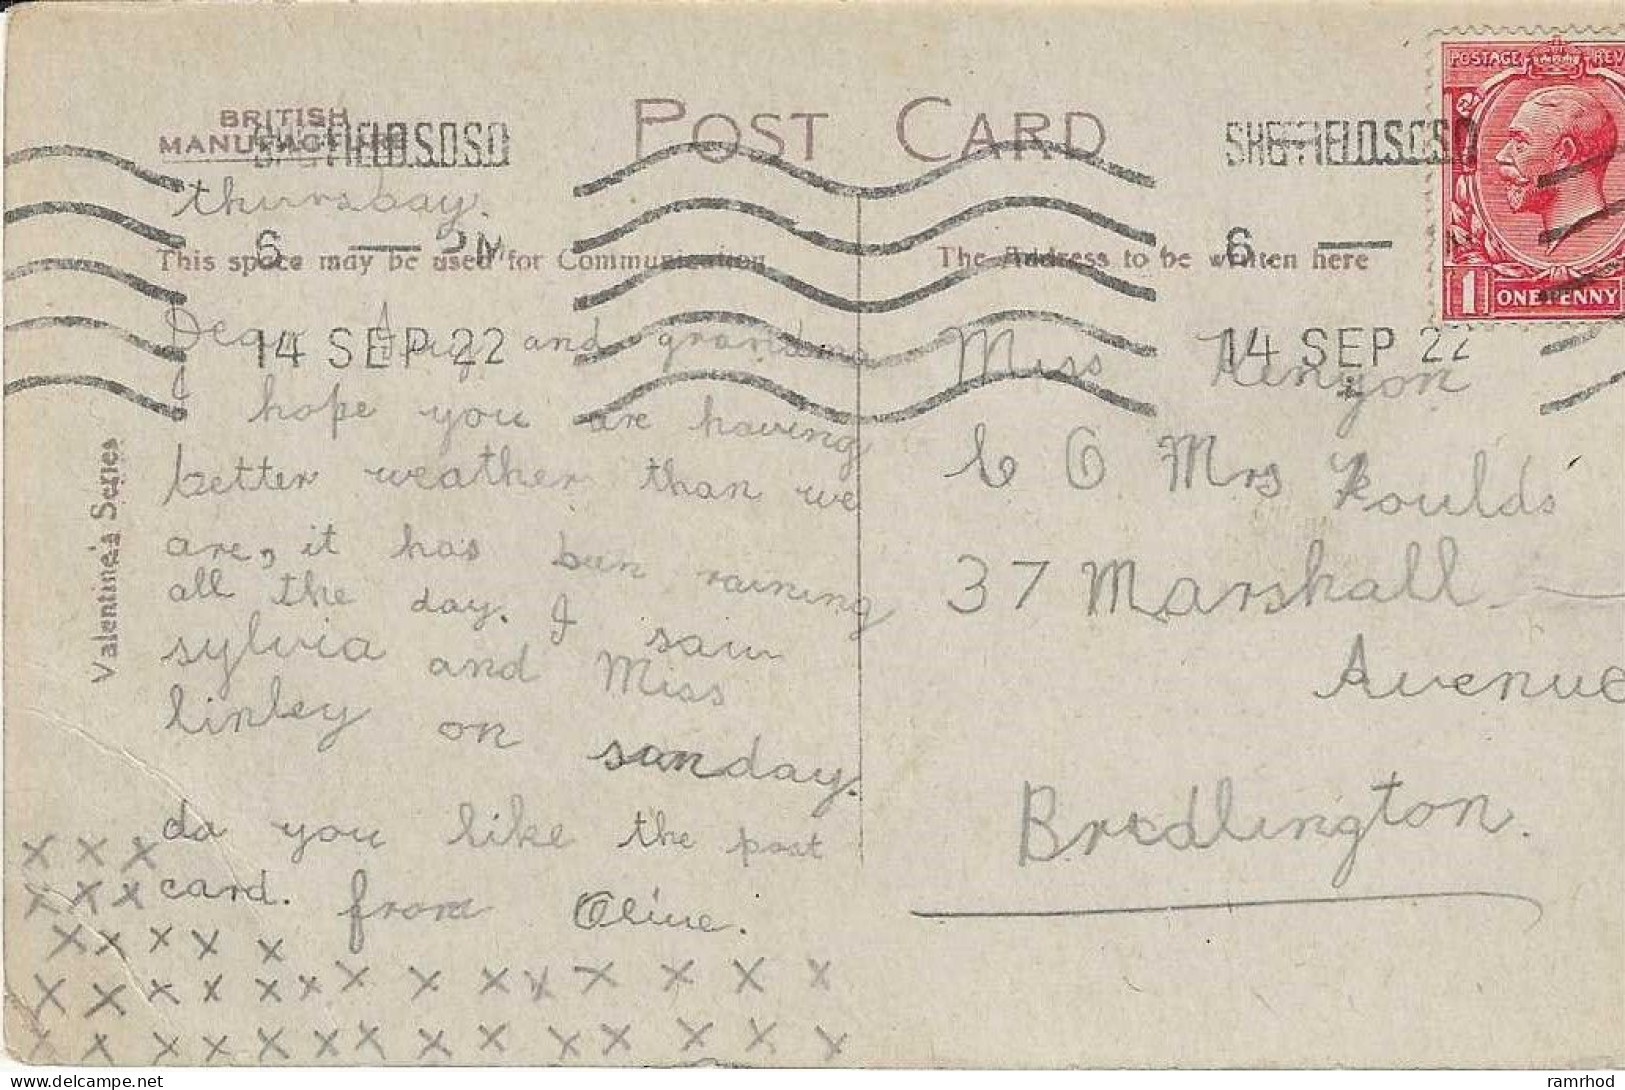 BRITISH
MANUFACTURE
POST CARD
SHEFFIELD.S.O.S.O
SHEFFIELD.S.O.S.O
POSTAGE REV
thursbay.
6 — PM
6 —
This space may be used for Communication
The Address to be written here
1 ONE PENNY
14 SEP 22
14 SEP 22
Dear and grandma
I hope you are having
better weather than we
are, it has been raining
all the day. I saw
sylvia and Miss
linley on sunday.
do you like the post
card. from Olive.
x x x
x x x
x x x x x
x x x x x x x x x x x x x x
x x x x x x x x x x x x x x
Valentine's Series
Miss Kenyon
C O Mrs Foulds
37 Marshall
Avenue
Bridlington.
ramrhod